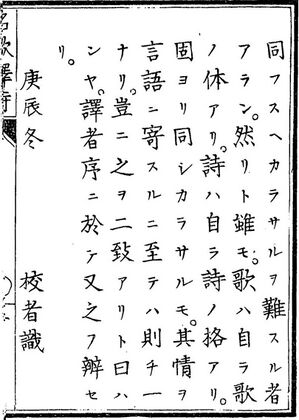 同フスヘカラサルヲ難スル者
アラン。然リト雖モ。歌ハ自ラ歌
ノ体アリ。詩ハ自ラ詩ノ挌アリ。
固ヨリ同シカラサルモ。其情ヲ
言語ニ寄スルニ至テハ則チ一
ナリ。豈ニ之ヲ二致アリト曰ハ
ンヤ。譯者序ニ於テ又之フ辨セ
リ。
庚辰冬 校者識